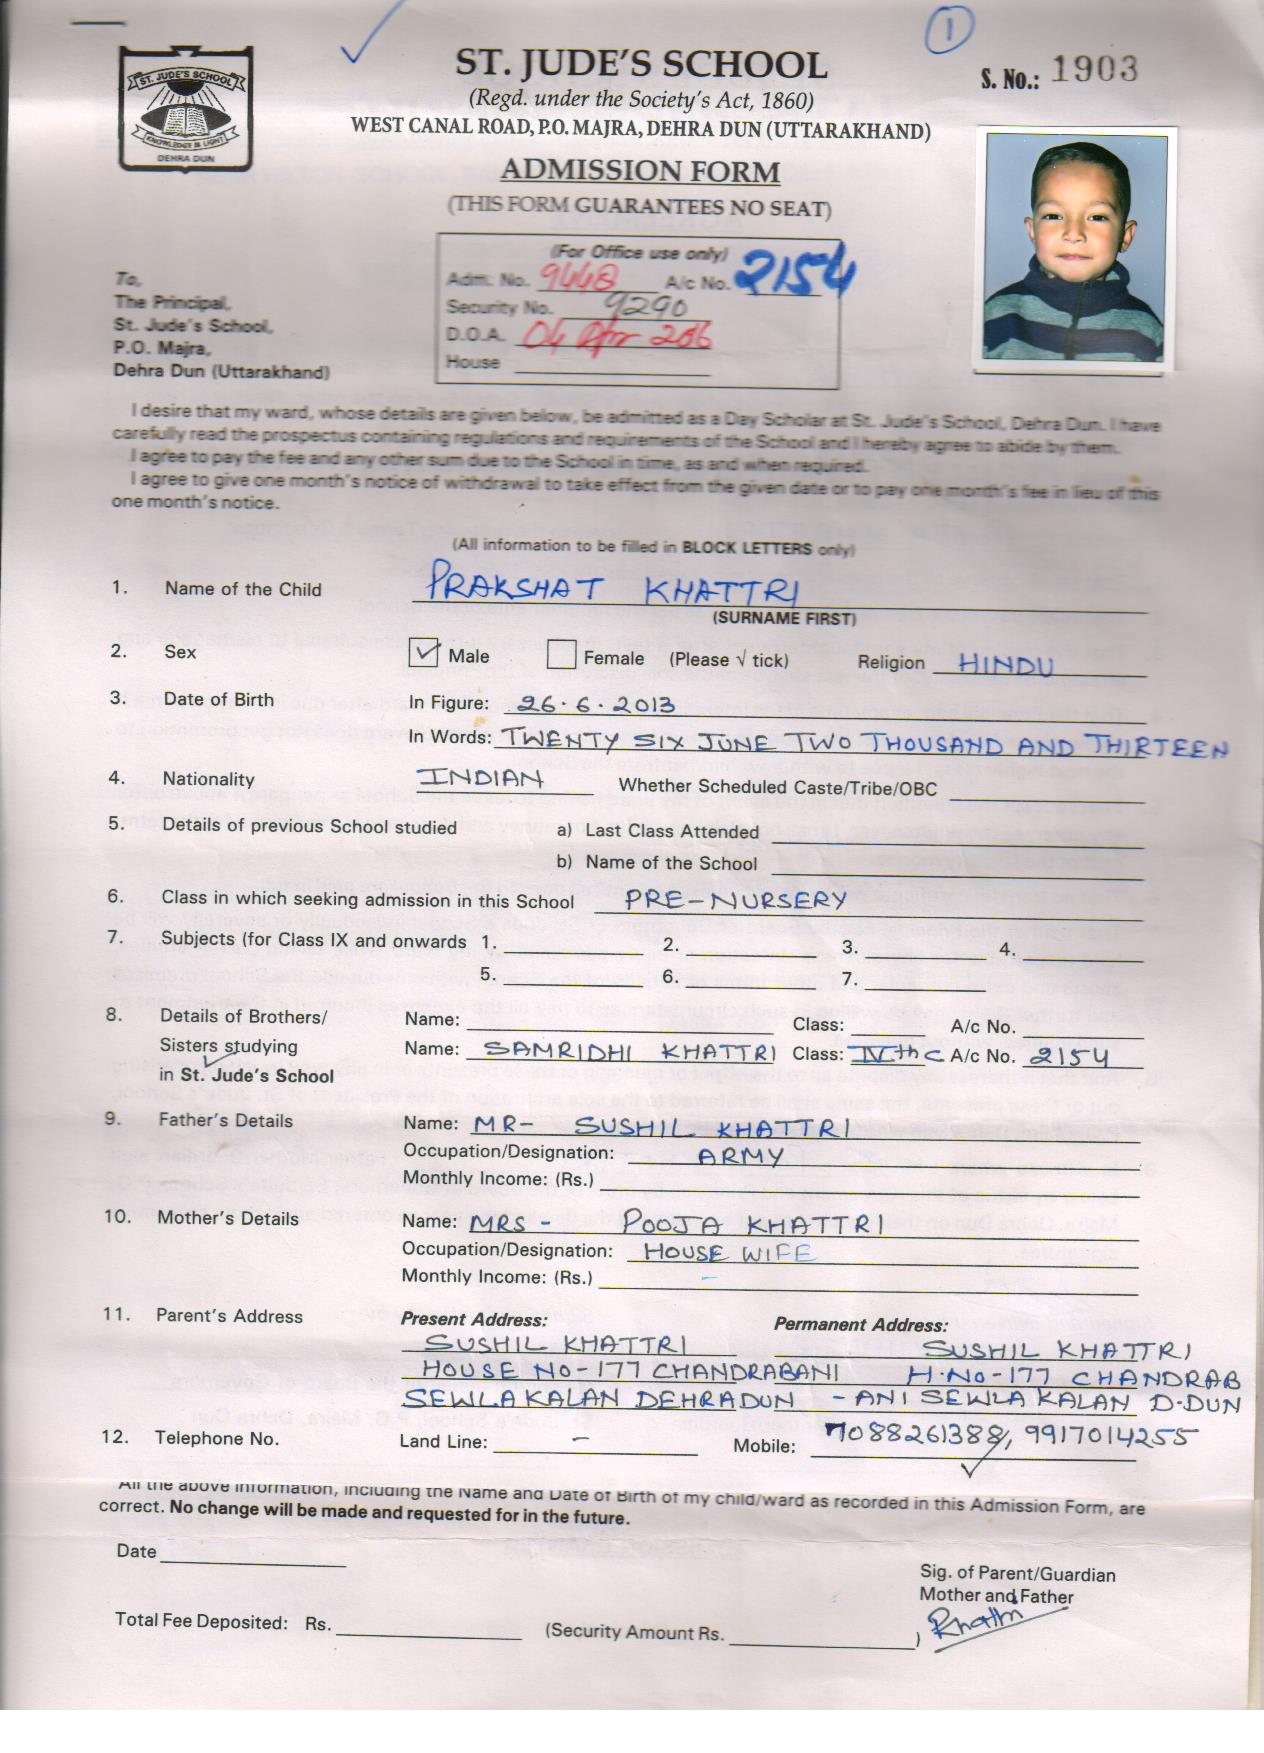 1
ST. JUDE'S SCHOOL
S. No.: 1903
(Regd. under the Society's Act, 1860)
WEST CANAL ROAD, P.O. MAJRA, DEHRA DUN (UTTARAKHAND)
ST. JUDE'S SCHOOL
KNOWLEDGE IS LIGHT
DEHRA DUN
ADMISSION FORM
(THIS FORM GUARANTEES NO SEAT)
(For Office use only)
Adm. No. 9448 A/c No. 2154
Security No. 9290
D.O.A. 04 Apr 2016
House
To,
The Principal,
St. Jude's School,
P.O. Majra,
Dehra Dun (Uttarakhand)
I desire that my ward, whose details are given below, be admitted as a Day Scholar at St. Jude's School, Dehra Dun. I have
carefully read the prospectus containing regulations and requirements of the School and I hereby agree to abide by them.
I agree to pay the fee and any other sum due to the School in time, as and when required.
I agree to give one month's notice of withdrawal to take effect from the given date or to pay one month's fee in lieu of this
one month's notice.
(All information to be filled in BLOCK LETTERS only)
1. Name of the Child PRAKSHAT KHATTRI
(SURNAME FIRST)
2. Sex Male Female (Please √ tick) Religion HINDU
3. Date of Birth In Figure: 26.6.2013
In Words: TWENTY SIX JUNE TWO THOUSAND AND THIRTEEN
4. Nationality INDIAN Whether Scheduled Caste/Tribe/OBC
5. Details of previous School studied a) Last Class Attended
b) Name of the School
6. Class in which seeking admission in this School PRE-NURSERY
7. Subjects (for Class IX and onwards 1. 2. 3. 4.
5. 6. 7.
8. Details of Brothers/ Name: Class: A/c No.
Sisters studying Name: SAMRIDHI KHATTRI Class: IVth C A/c No. 2154
in St. Jude's School
9. Father's Details Name: MR- SUSHIL KHATTRI
Occupation/Designation: ARMY
Monthly Income: (Rs.)
10. Mother's Details Name: MRS - POOJA KHATTRI
Occupation/Designation: HOUSE WIFE
Monthly Income: (Rs.) -
11. Parent's Address Present Address: Permanent Address:
SUSHIL KHATTRI SUSHIL KHATTRI
HOUSE NO-177 CHANDRABANI H.No-177 CHANDRAB
SEWLA KALAN DEHRADUN -ANI SEWLA KALAN D-DUN
12. Telephone No. Land Line: - Mobile: 7088261388, 9917014255
All the above information, including the Name and Date of Birth of my child/ward as recorded in this Admission Form, are
correct. No change will be made and requested for in the future.
Date
Sig. of Parent/Guardian
Mother and Father
Khattri
Total Fee Deposited: Rs. (Security Amount Rs. )